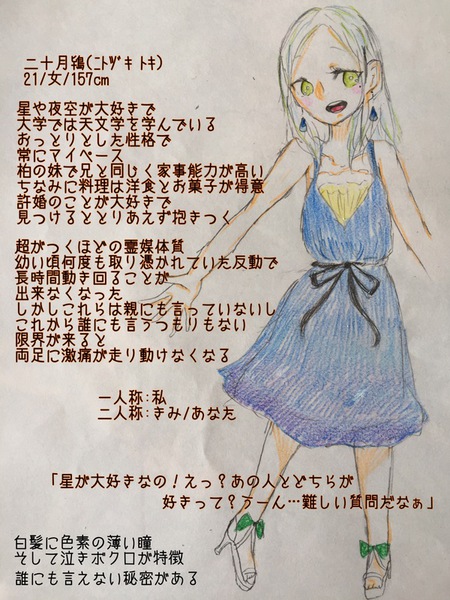 二十月鴇(ﾆﾄﾂﾞｷ ﾄｷ)
21/女/157cm
星や夜空が大好きで
大学では天文学を学んでいる
おっとりとした性格で
常にマイペース
柏の妹で兄と同じく家事能力が高い
ちなみに料理は洋食とお菓子が得意
許婚のことが大好きで
見つけるととりあえず抱きつく
超がつくほどの霊媒体質
幼い頃何度も取り憑かれていた反動で
長時間動き回ることが
出来なくなった
しかしこれらは親にも言っていないし
これから誰にも言うつもりもない
限界が来ると
両足に激痛が走り動けなくなる
一人称:私
二人称:きみ/あなた
「星が大好きなの!えっ?あの人とどちらが
好きって?うーん…難しい質問だなぁ」
白髪に色素の薄い瞳
そして泣きボクロが特徴
誰にも言えない秘密がある